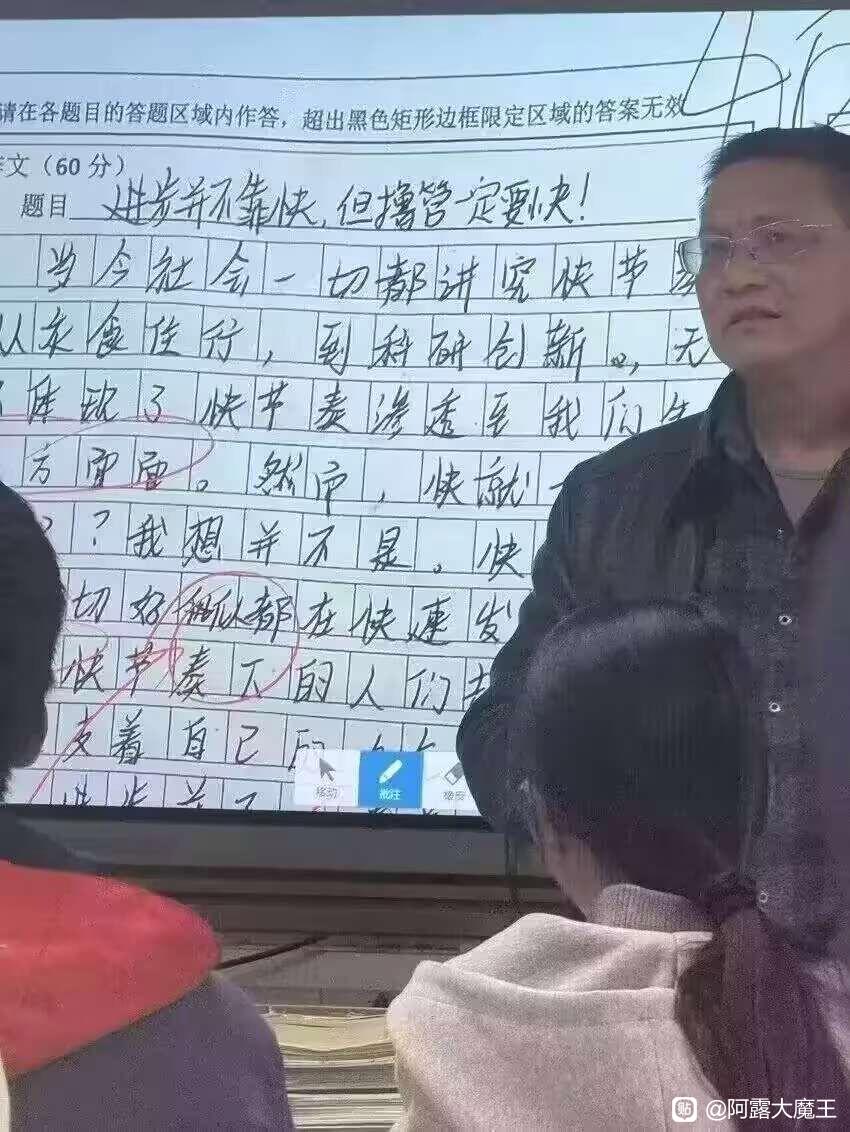 请在各题目的答题区域内作答，超出黑色矩形边框限定区域的答案无效
作文（60分）
题目 进步并不靠快，但撸管一定要快！
当今社会一切都讲究快节奏
从衣食住行，到科研创新。，无
体现了快节奏渗透至我们生
方面面。然而，快就一
？我想并不是。快
切好都在快速发
快节奏下的人们
支着自己的
进步并不
移动 批注 橡皮
贴 @阿露大魔王